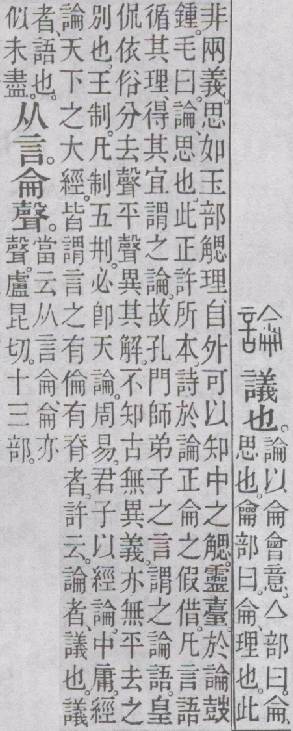 論議也。
論以侖會意。亼部曰。侖、
思也。龠部曰。侖、理也。此
非兩義。思如玉部䚡理自外可以知中之䚡。靈臺於論鼓
鍾。毛曰。論、思也。此正許所本。詩於論正侖之假借。凡言語
循其理得其宜謂之論。故孔門師弟子之言謂之論語。皇
侃依俗分去聲平聲異其解。不知古無異義。亦無平去之
別也。王制。凡制五刑。必卽天論。周易。君子以經論。中庸。經
論天下之大經。皆謂言之有倫有脊者。許云。論者、議也。議
者、語也。
似未盡。
从言。侖聲。
當云从言侖、侖亦
聲。盧昆切。十三部。